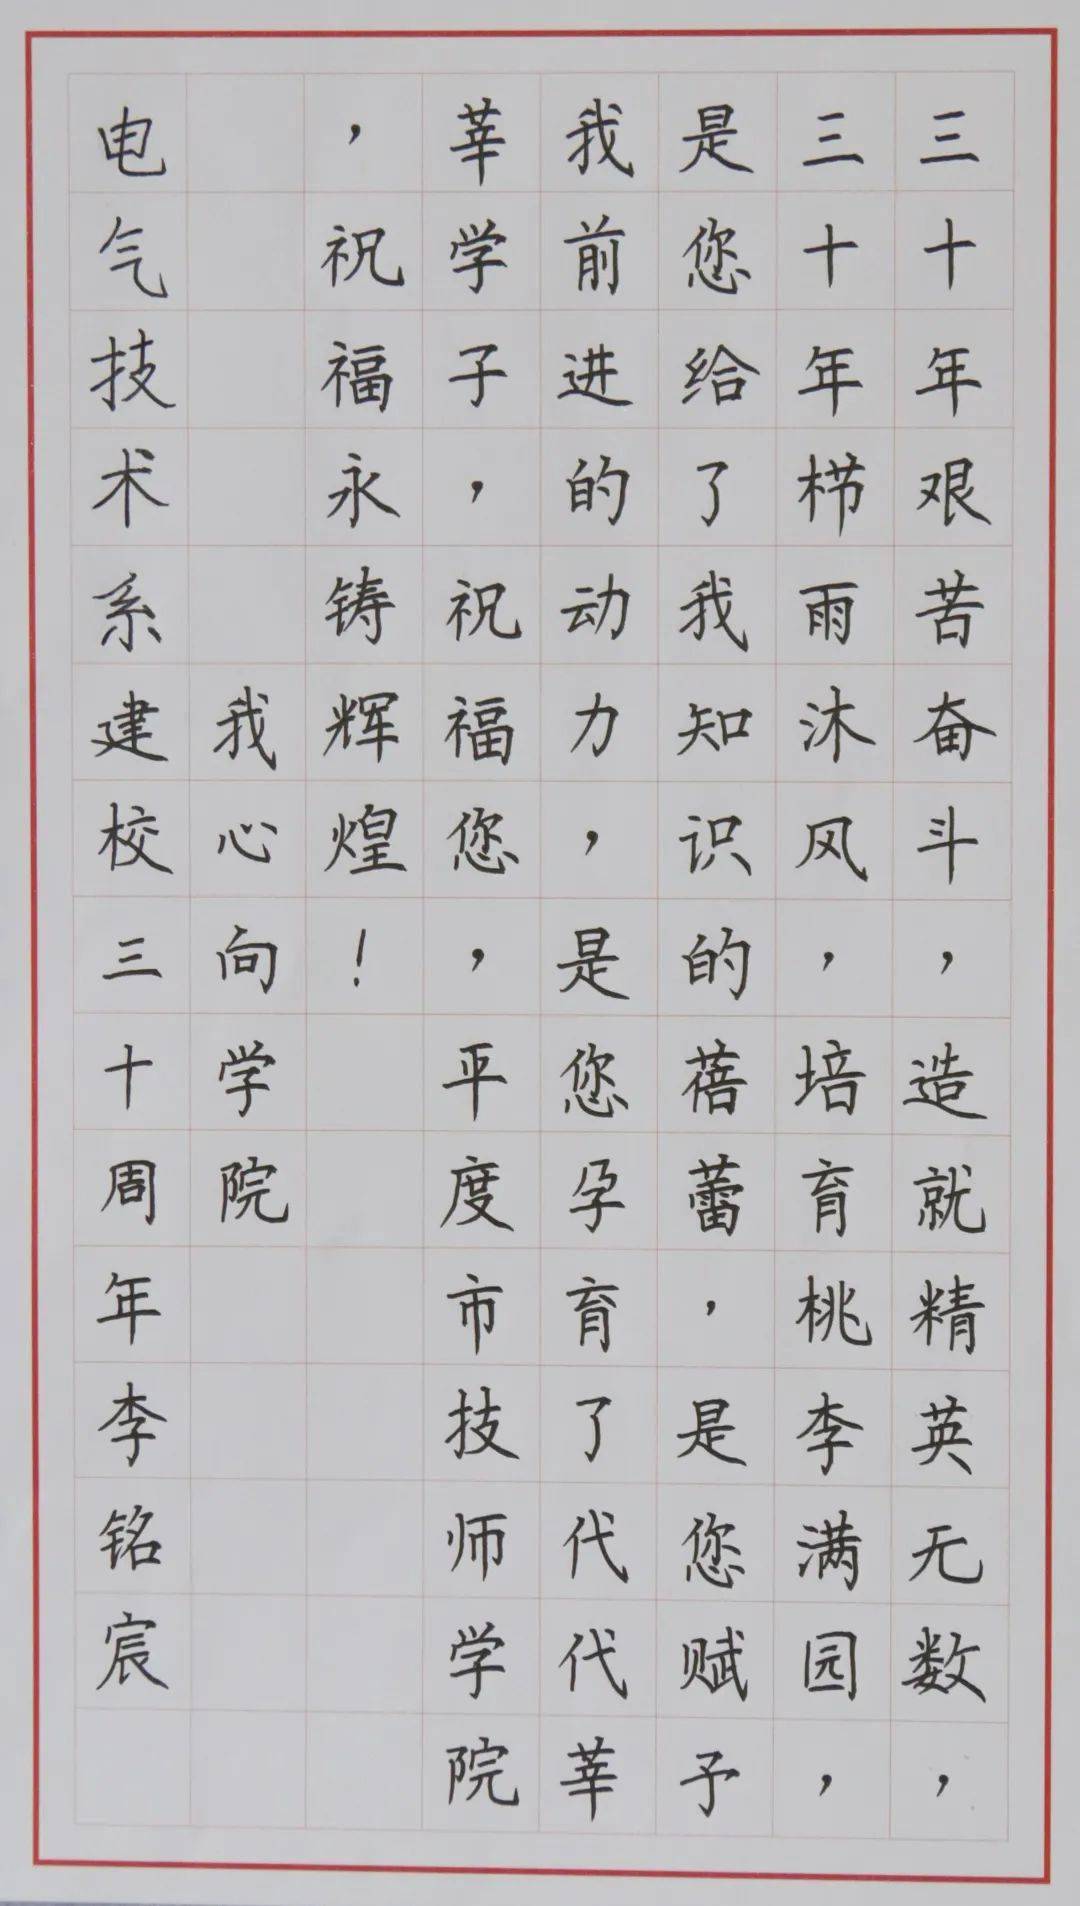 三十年艰苦奋斗，造就精英无数，
三十年栉雨沐风，培育桃李满园，
是您给了我知识的蓓蕾，是您赋予
我前进的动力，是您孕育了代代莘
莘学子，祝福您，平度市技师学院
，祝福永铸辉煌！
我心向学院
电气技术系建校三十周年李铭宸